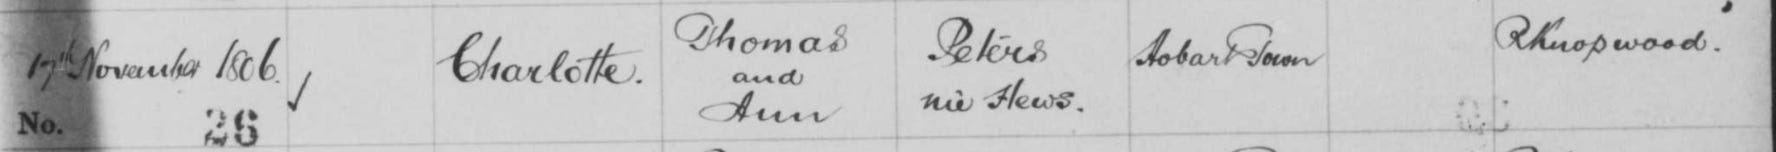 17th November 1806. Charlotte. Thomas and Ann Peters nie Hews. Hobart Town R Knopwood.
No. 26